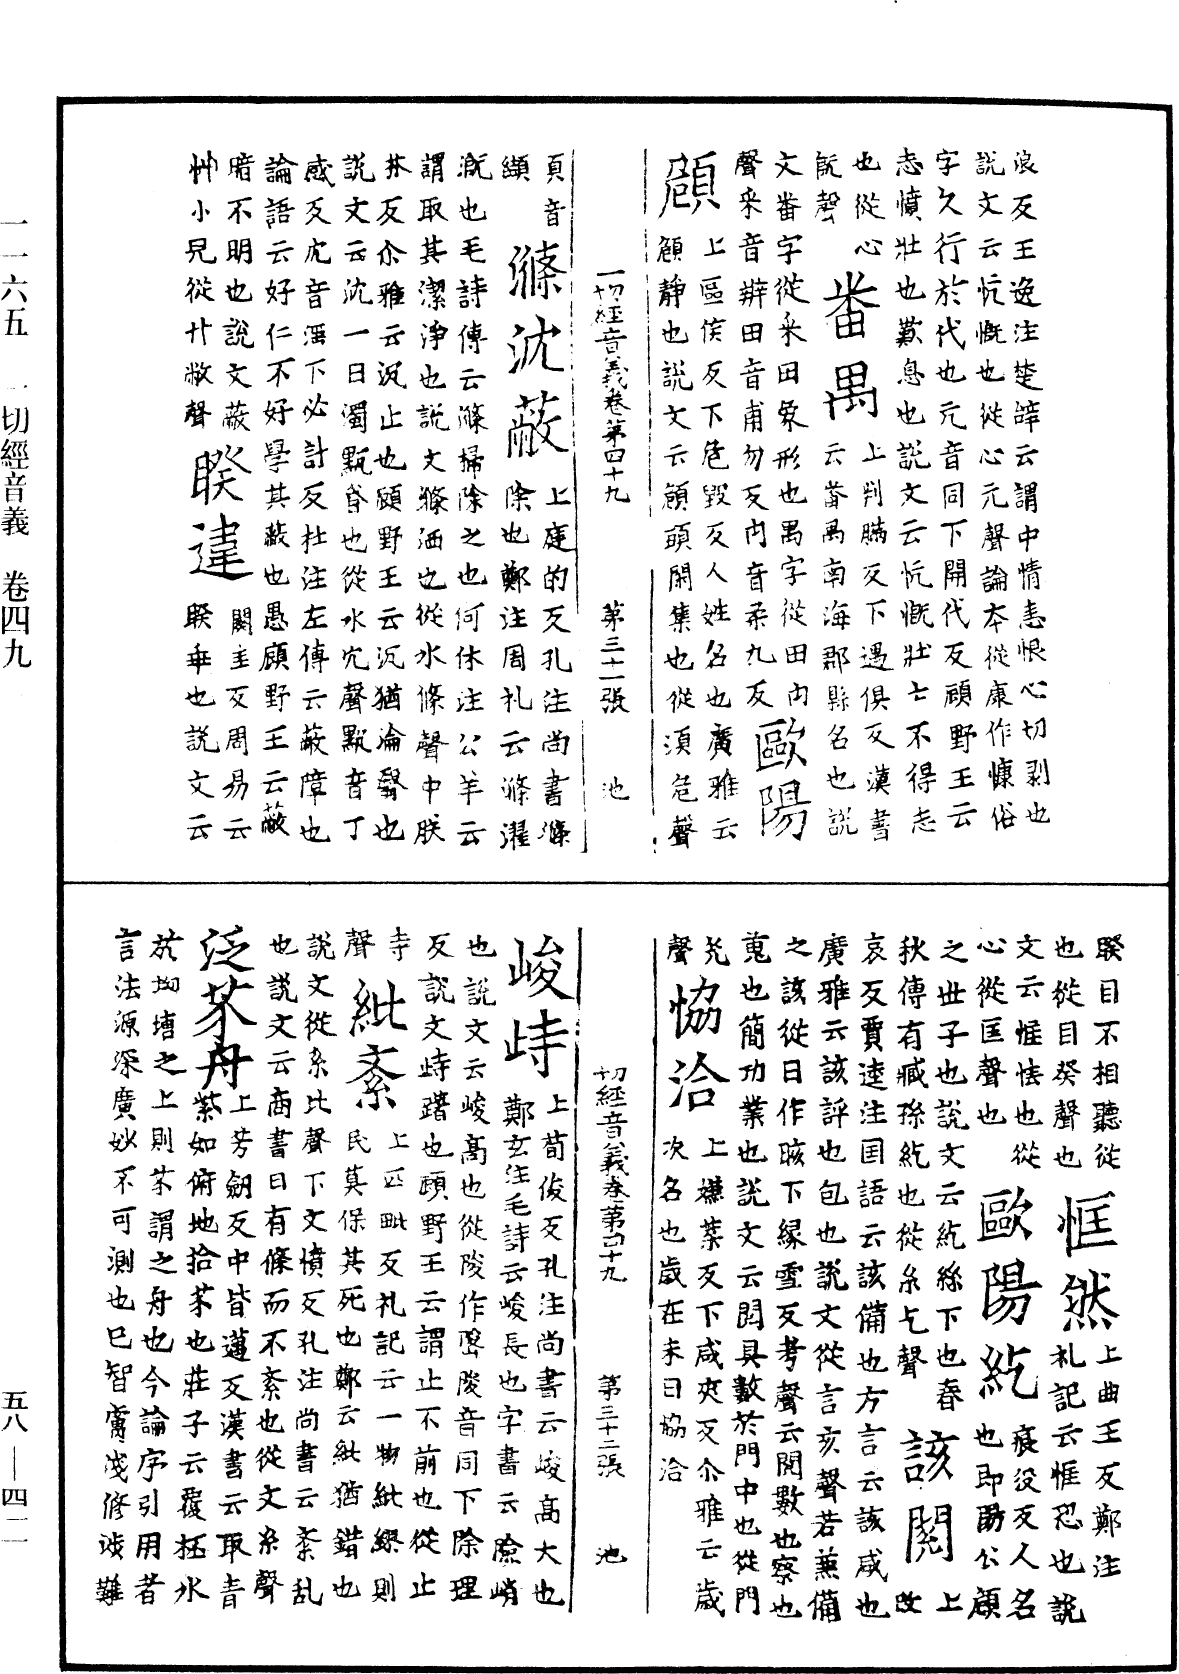 浪反王逸注楚辝云謂中情恚恨心切剥也
說文云忼慨也從心元聲論本從康作慷俗
字久行於代也元音同下開代反顧野王云
志憤壯也歎息也說文云忼慨壯士不得志
也從心
旣聲
番禺
上判瞞反下遇俱反漢書
云番禺南海郡縣名也說
文番字從釆田象形也禺字從田禸
聲釆音辦田音甫勿反禸音柔九反
歐陽
頠
上區侯反下危毀反人姓名也廣雅云
頠静也說文云頠頭閑集也從頁危聲
一切經音義卷第四十九
第三十一張
池
頁音
纈
滌沈蔽
上庭的反孔注尚書滌
除也鄭注周礼云滌濯
漑也毛詩傳云滌掃除之也何休注公羊云
謂取其潔淨也說文滌洒也從水條聲中朕
林反尒雅云沉止也顧野王云沉猶淪翳也
說文云沈一曰濁黕昏也從水冘聲黕音丁
感反冘音滛下必計反杜注左傳云蔽障也
論語云好仁不好學其蔽也愚顧野王云蔽
暗不明也說文蔽
艸小皃從廾敝聲
睽違
闚圭反周易云
睽乖也說文云
睽目不相聽從
也從目癸聲也
恇然
上曲王反鄭注
礼記云恇恐也說
文云恇怯也從
心從匡聲也
歐陽紇
痕没反人名
也即勛公頠
之世子也說文云紇絲下也春
秋傳有臧孫紇也從糸乞聲
該閱
上
改
哀反賈逵注国語云該備也方言云該咸也
廣雅云該評也包也說文從言亥聲若兼備
之該從日作晐下緣雪反考聲云閱數也察也
蒐也簡功業也說文云閱具數於門中也從門
兊
聲
協洽
上嫌葉反下咸夾反尒雅云歲
次名也歲在未曰協洽
切經音義卷第四十九
第三十二張
池
峻峙
上荀俊反孔注尚書云峻高大也
鄭玄注毛詩云峻長也字書云險峭
也說文云峻高也從陖作陖音同下除理
反說文峙躇也顧野王云謂止不前也從止
寺
聲
紕紊
上匹毗反礼記云一物紕繆則
民莫保其死也鄭云紕猶錯也
說文從糸比聲下文憤反孔注尚書云紊乱
也說文云商書曰有條而不紊也從文糸聲
泛芥舟
上芳劒反中皆邁反漢書云取青
紫如俯地拾芥也莊子云覆杯水
於坳塘之上則芥謂之舟也今論序引用者
言法源深廣妙不可測也已智膚淺修涉難
一一六五
一切經音義
卷四九
五八—四二